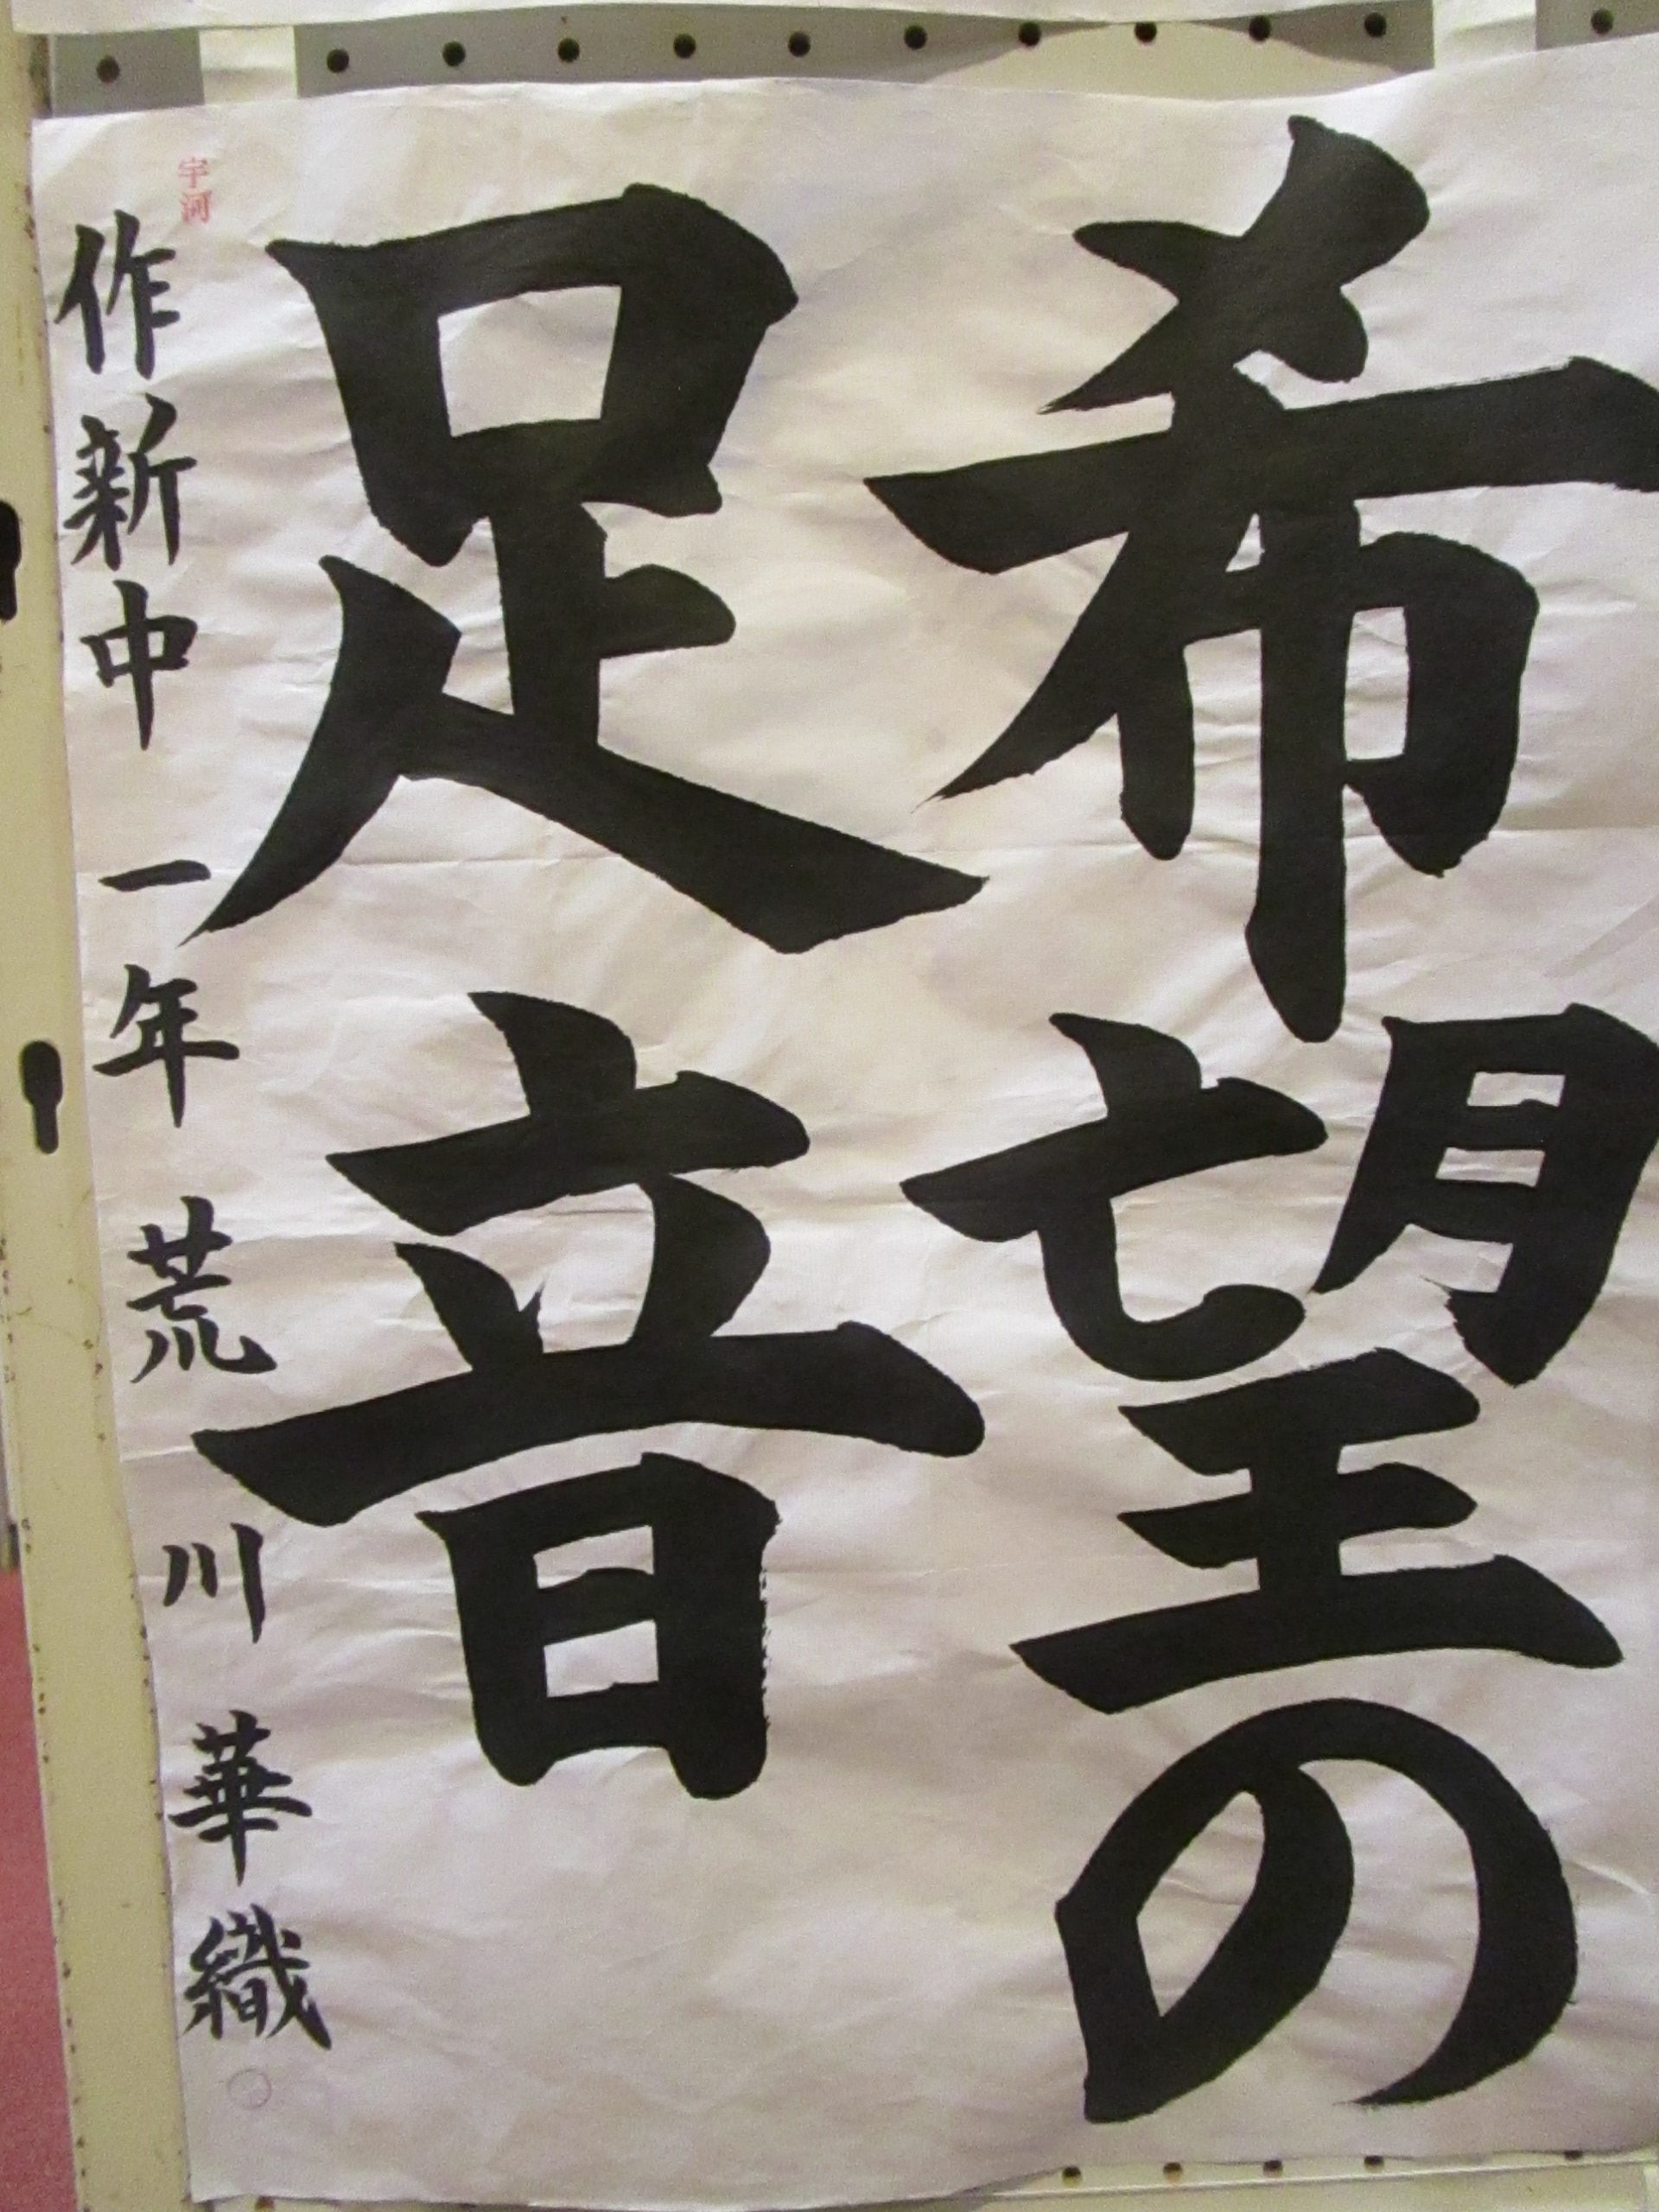 希望の
足音
作新中 一年 荒川 華織
宇河